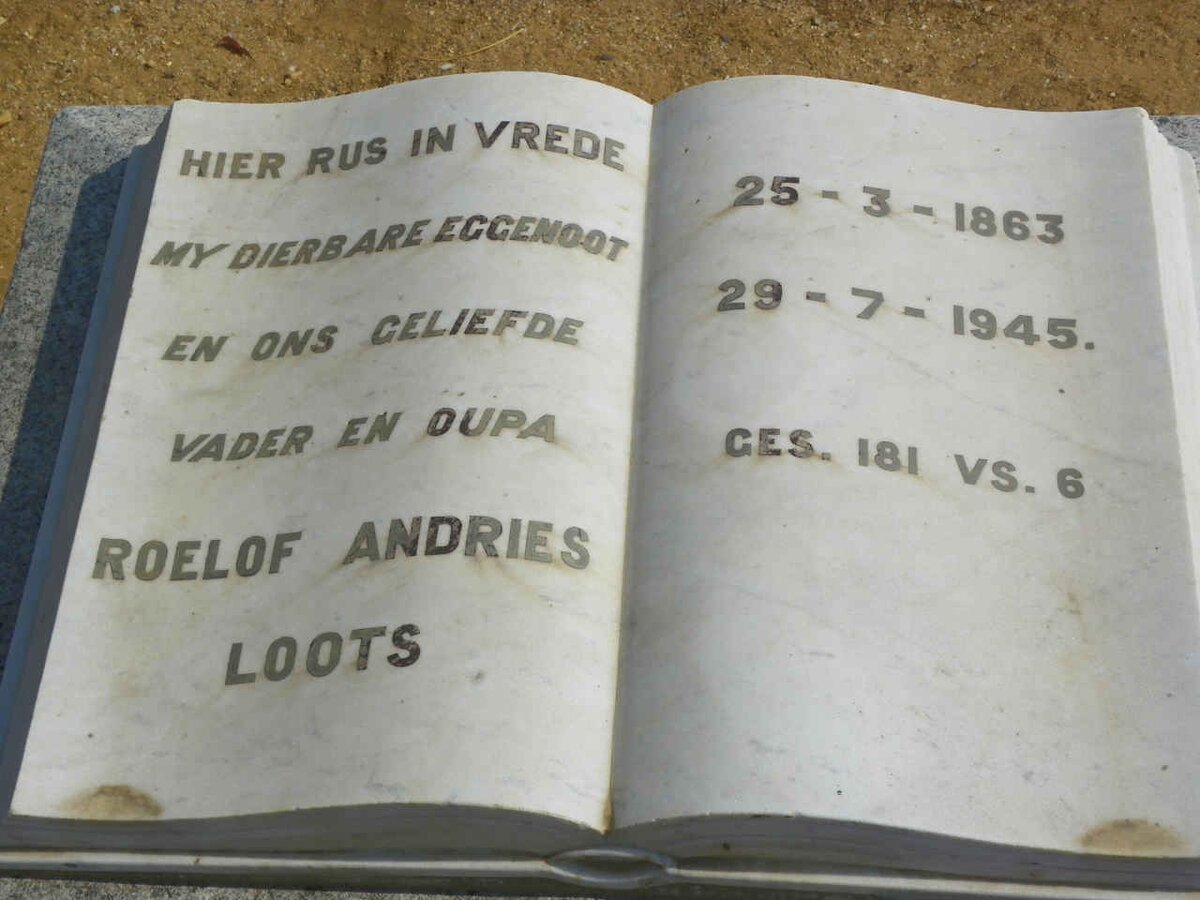 HIER RUS IN VREDE
MY DIERBARE EGGENOOT
EN ONS GELIEFDE
VADER EN OUPA
ROELOF ANDRIES
LOOTS
25 - 3 - 1863
29 - 7 - 1945.
GES. 181 VS. 6